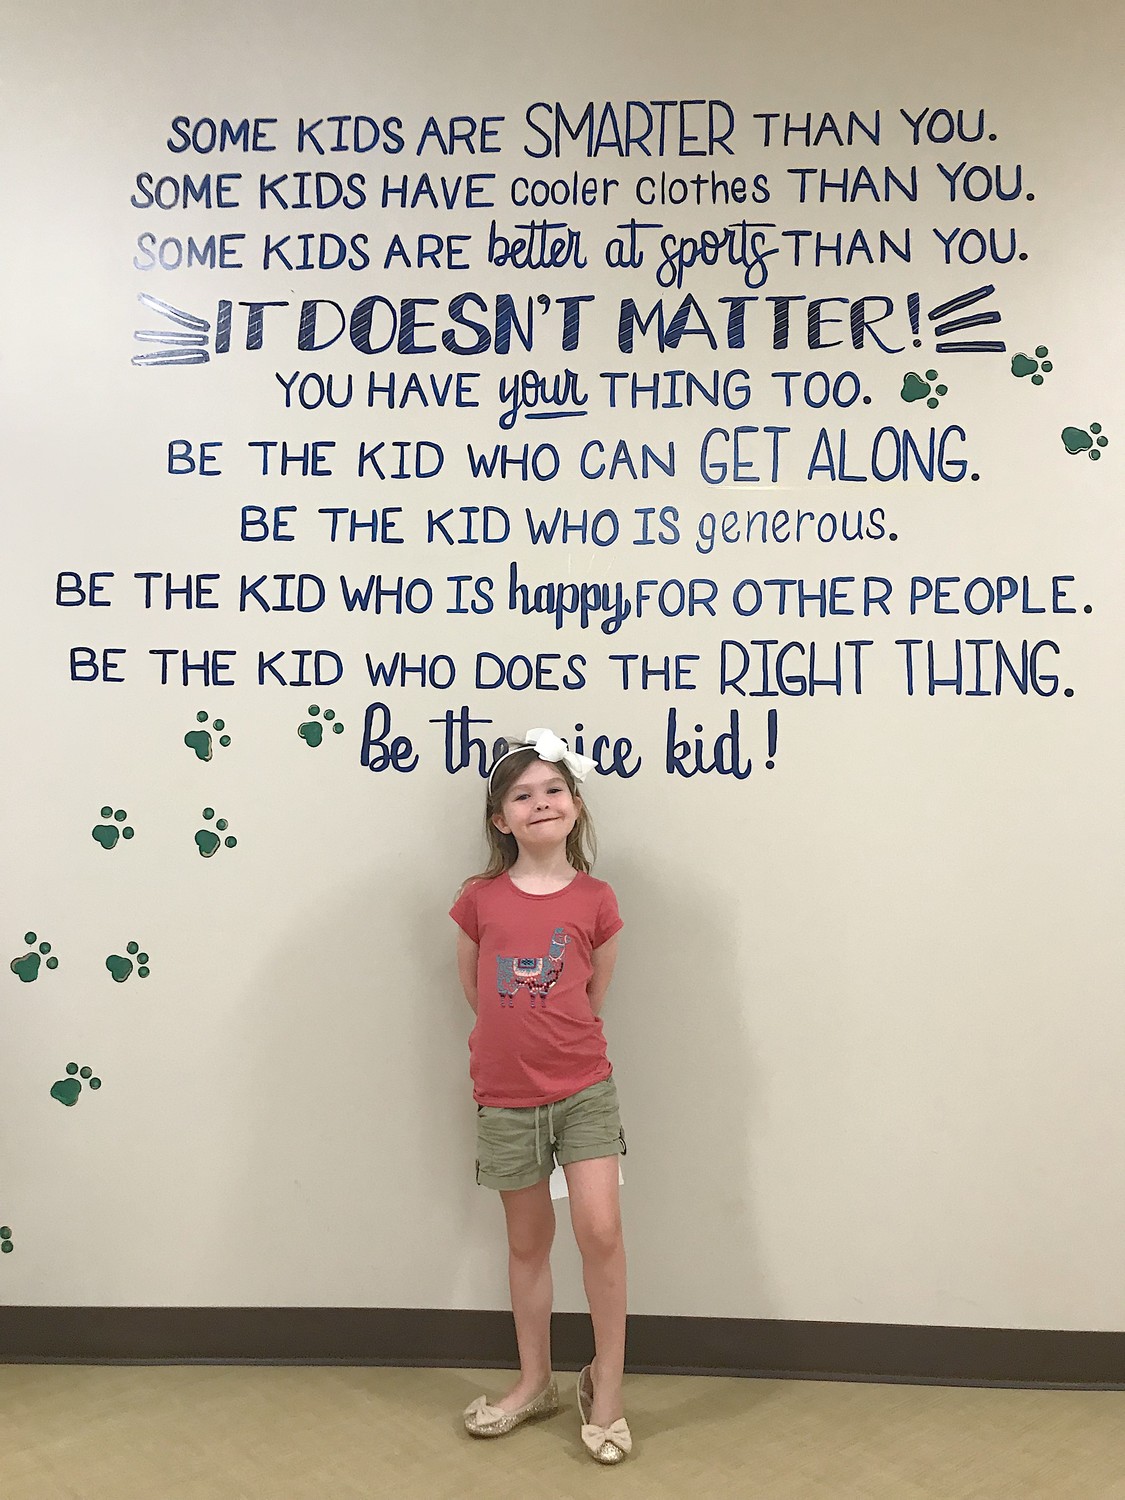 SOME KIDS ARE SMARTER THAN YOU.
SOME KIDS HAVE cooler clothes THAN YOU.
SOME KIDS ARE better at sports THAN YOU.
IT DOESN'T MATTER!
YOU HAVE your THING TOO.
BE THE KID WHO CAN GET ALONG.
BE THE KID WHO IS generous.
BE THE KID WHO IS happy FOR OTHER PEOPLE.
BE THE KID WHO DOES THE RIGHT THING.
Be the nice kid!